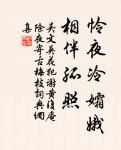 怜夜冷孀娥
相伴孤照
吴文英花犯谢黄復庵
除夜寄古梅枝詞典網